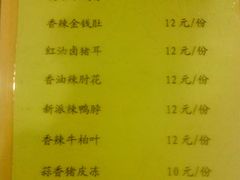 香辣金钱肚 12元/份
红油卤猪耳 12元/份
香油辣肘花 12元/份
新派辣鸭脖 12元/份
香辣牛柏叶 12元/份
蒜香猪皮冻 10元/份